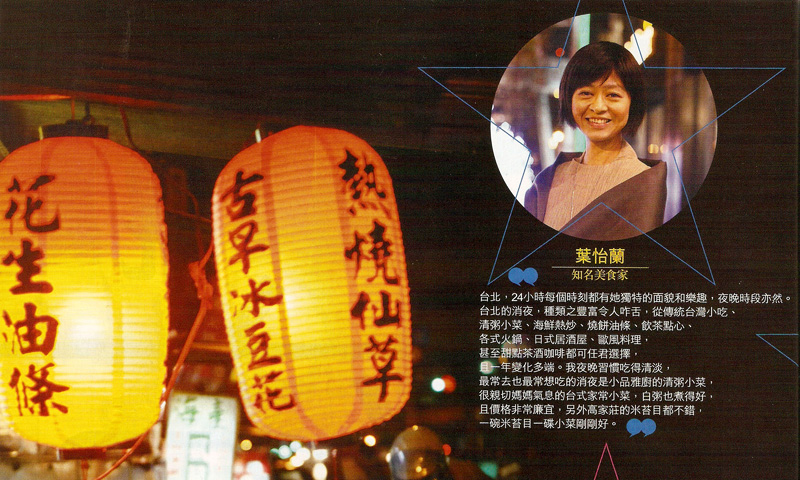 花生油條
古早冰豆花
熱燒仙草
葉怡蘭
知名美食家
台北，24小時每個時刻都有她獨特的面貌和樂趣，夜晚時段亦然。
台北的消夜，種類之豐富令人咋舌，從傳統台灣小吃、
清粥小菜、海鮮熱炒、燒餅油條、飲茶點心、
各式火鍋、日式居酒屋、歐風料理，
甚至甜點茶酒咖啡都可任君選擇，
且一年變化多端。我夜晚習慣吃得清淡，
最常去也最常想吃的消夜是小品雅廚的清粥小菜，
很親切媽媽氣息的台式家常小菜，白粥也煮得好，
且價格非常廉宜，另外高家莊的米苔目都不錯，
一碗米苔目一碟小菜剛剛好。